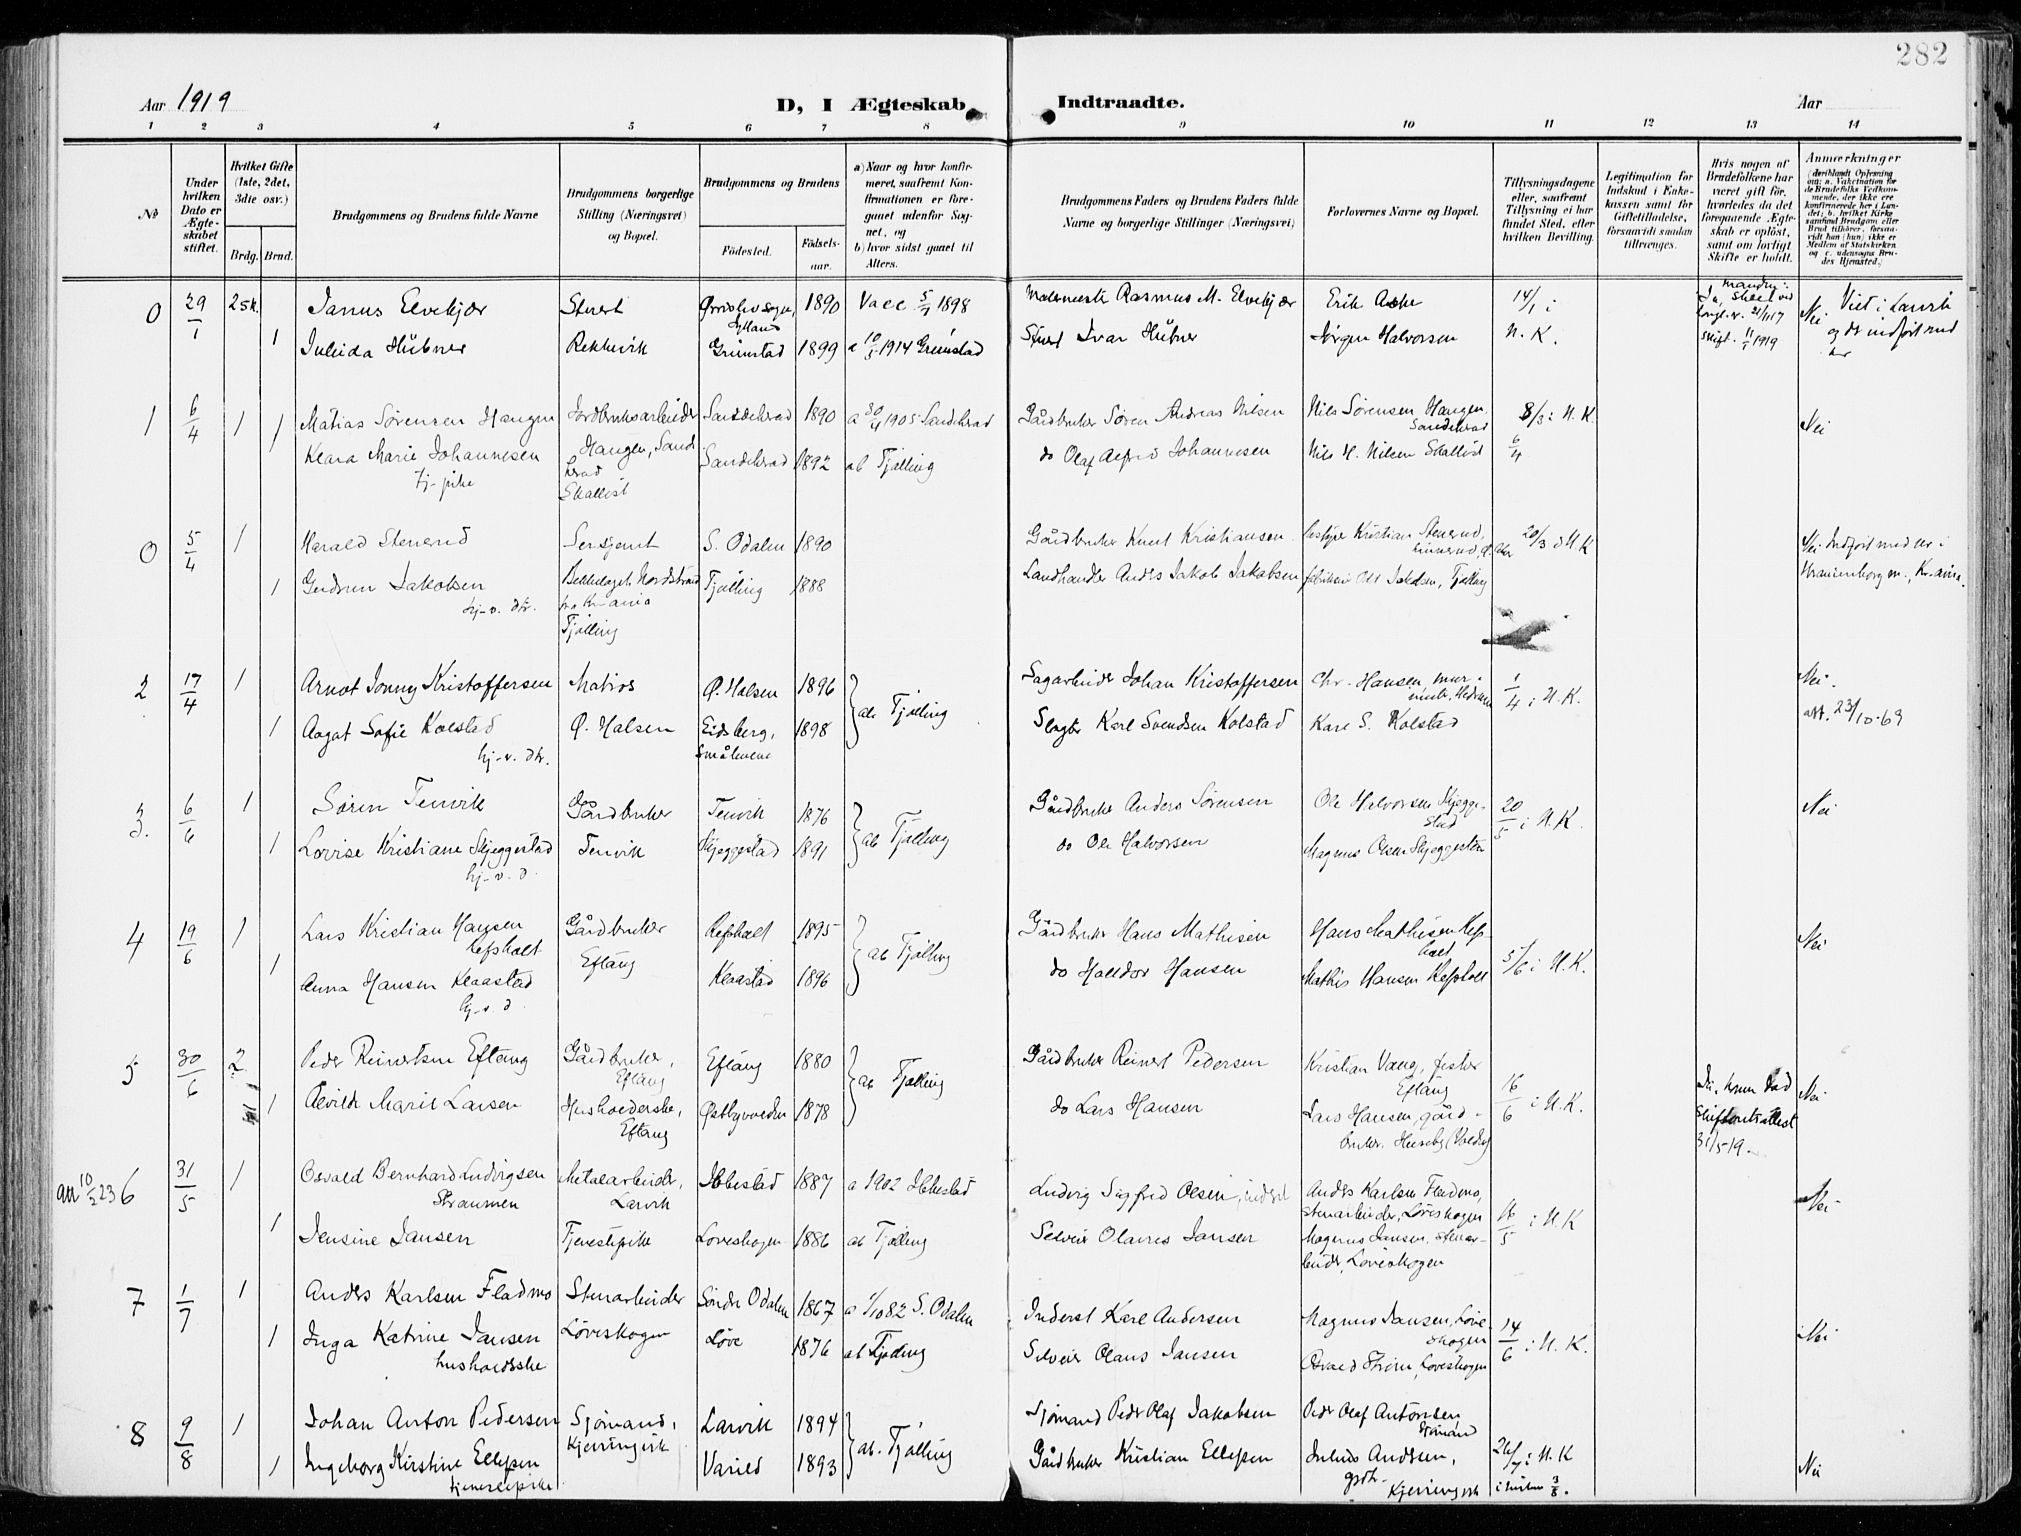 282
Aar 1919
D, I Ægteskab Indtraadte.
Aar
1 2 3 4 5 6 7 8 9 10 11 12 13 14
No
Under hvilken Dato er Ægteskabet stiftet.
Hvilket Gifte (1ste, 2det, 3die osv.)
Brdg. Brud.
Brudgommens og Brudens fulde Navne
Brudgommens borgerlige Stilling (Næringsvei) og Bopæl.
Brudgommens og Brudens
Fødested.
Fødselsaar.
a) Naar og hvor konfirmeret, saafremt Konfirmationen er foregaaet udenfor Sognet, og
b) hvor sidst gaaet til Alters.
Brudgommens Faders og Brudens Faders fulde Navne og borgerlige Stillinger (Næringsvei)
Forlovernes Navne og Bopæl.
Tillysningsdagene eller, saafremt Tillysning ei har fundet Sted, efter hvilken Bevilling.
Legitimation for Indskud i Enkekassen samt for Giftetilladelse, forsaavidt saadan tiltrænges.
Hvis nogen af Brudefolkene har været gift før, hvorledes da det foregaaende Ægteskab er opløst, samt om lovligt Skifte er holdt.
Anmærkninger (deriblandt Oplysning om: a. Vakcination for de Brudefolks Vedkommende, der ikke ere konfirmerede her i Landet; b. hvilket Kirkesamfund Brudgom eller Brud tilhører, forsaavidt han (hun) ikke er Medlem af Statskirken og c. udensogns Brudes Hjemsted.)
0 29/1 2 sk. Janus Elvekjær Stuert 1890 Vacc 5/7 1898 Rasmus M. Elvekjær Erik 14/1 i
1 Juleida Hübner Rekkevik Grimstad 1899 a 10/5 1914 Grimstad Stuert Ivar Hübner Jørgen Halvorsen N. K. skift. 11/1 1919 Nei
1 6/4 1 1 Matias Sørensen Haugen Jordbruksarbeider Sandeherad 1890 a 30/4 1905 Sandeherad Gårdbruker Søren Andreas Nilsen Nils Sørensen Haugen, Sandeherad 8/3 i N. K. Nei
Klara Marie Johannesen Haugen, Sandeherad Sandeherad 1892 ab Tjølling do Olaf Alfred Johannesen Nils H. Nilsen Skallist 6/4
tj-pike Skallist
0 5/4 1 Harald Stenerud Sersjant S. Odalen 1890 Gårdbruker Knut Kristiansen Kristian Stenerud, 20/3 i N. K Nei. Indført med nr i
1 Gudrun Jakobsen Bekkelaget, Nordstrand Tjølling 1888 Landhandler Anders Jakob Jakobsen Ole Jakobsen, Tjølling Uranienborg m., Kr.ania.
hj-v. dtr. Tjølling
2 17/4 1 Arnot Jonny Kristoffersen Matros Ø. Halsen 1896 ab Tjølling Sagarbeider Johan Kristoffersen Chr. Hansen, 1/4 i N. K. Nei.
1 Aagot Sofie Kolstad Ø. Halsen Eidsberg, Smålenene 1898 Slagter Karl Svendsen Kolstad Karl S. Kolstad att. 23/10-69
hj-v. dtr.
3. 6/6 1 Søren Tenvik Gårdbruker Tenvik 1876 ab Tjølling Gårdbruker Anders Sørensen Ole Halvorsen Skjeggestad 20/5 i N. K. Nei
1 Lovise Kristiane Skjeggestad Tenvik Skjeggestad 1891 do Ole Halvorsen Magnus Olsen Skjeggestad
hj-v. d.
4 19/6 1 Lars Kristian Hansen Refsholt Gårdbruker Refsholt 1895 ab Tjølling Gårdbruker Hans Mathisen Hans Mathisen Refsholt 5/6 i N. K. Nei
1 Anna Hansen Klaastad Eftang Klaastad 1896 do Halldor Hansen Mathis Hansen Refsholt
hj-v. d.
5 30/6 2 Peder Reinertsen Eftang Gårdbruker, Eftang Eftang 1880 ab Tjølling Gårdbruker Reinert Pedersen Kristian Vang, fisker Eftang 16/6 i N. K. Nei
1 Alvilde Marie Larsen Husholderske, Eftang Østbyvveden 1878 do Lars Hansen Lars Hansen, gårdbruker, Huseby 31/5-19.
att 10/2 23 6 31/5 1 Osvald Bernhard Ludvigsen Straumen Metalarbeider, Larvik Ibbestad 1887 a 1902 Ibbestad Ludvig Sigfred Olsen, inderst Anders Karlsen Fladmo, stenarbeider, Løveskogen 16/5 i N. K Nei
1 Jensine Jansen Tjenestepike Løveskogen 1886 ab Tjølling Selveier Olaves Jansen Magnus Jansen, stenarbeider, Løveskogen
7 1/7 1 Anders Karlsen Fladmo Stenarbeider Søndre Odalen 1867 a 1/10 82 S. Odalen Inderst Karl Andersen Magnus Jansen, Løveskogen 14/6 i N. K. Nei
1 Inga Katrine Jansen Løveskogen Løve 1876 ab Tjølling Selveier Olaus Jansen Osvald Strøm, Løveskogen
husholderske
8 9/8 1 Johan Anton Pedersen Sjømand, Kjerringvik Larvik 1894 ab. Tjølling Sjømand Peder Olaf Jakobsen Peder Olaf Antonsen, Sjømand 26/7 i N. K
1 Ingeborg Kirstine Ellefsen Varild 1893 Gårdbruker Kristian Ellefsen Julius Andersen, Kjerringvik 3/8. Nei
tjenestepike